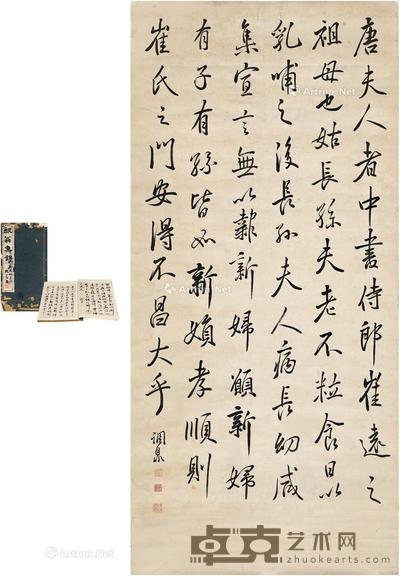 唐夫人者中書侍郎崔遠之
祖母也姑長孫夫老不粒食日以
乳哺之後長孫夫人病長幼咸
集宣言無以報新婦願新婦
有子有孫皆如新婦孝順則
崔氏之門安得不昌大乎
Artron.Net
Artron.Net
Artron.Net
卓克艺术网
www.zhuokearts.com